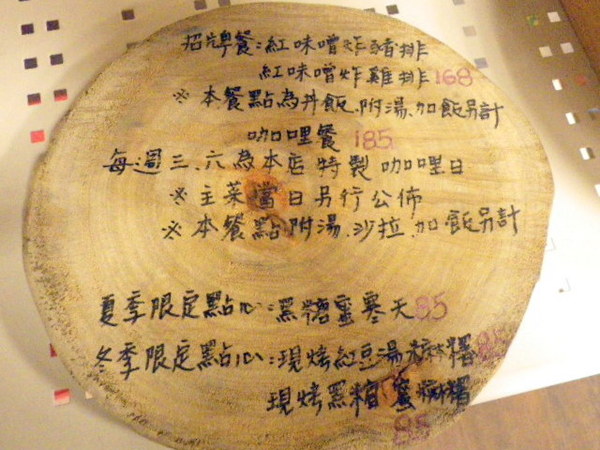 招牌餐:紅味噌炸豬排
紅味噌炸雞排168
※本餐點為丼飯.附湯.加飯另計
咖哩餐 185
每週三.六為本店特製咖哩日
※主菜當日另行公佈
※本餐點附湯.沙拉.加飯另計
夏季限定點心:黑糖蜜寒天85
冬季限定點心:現烤紅豆湯麻糬85
現烤黑糖蜜麻糬
85